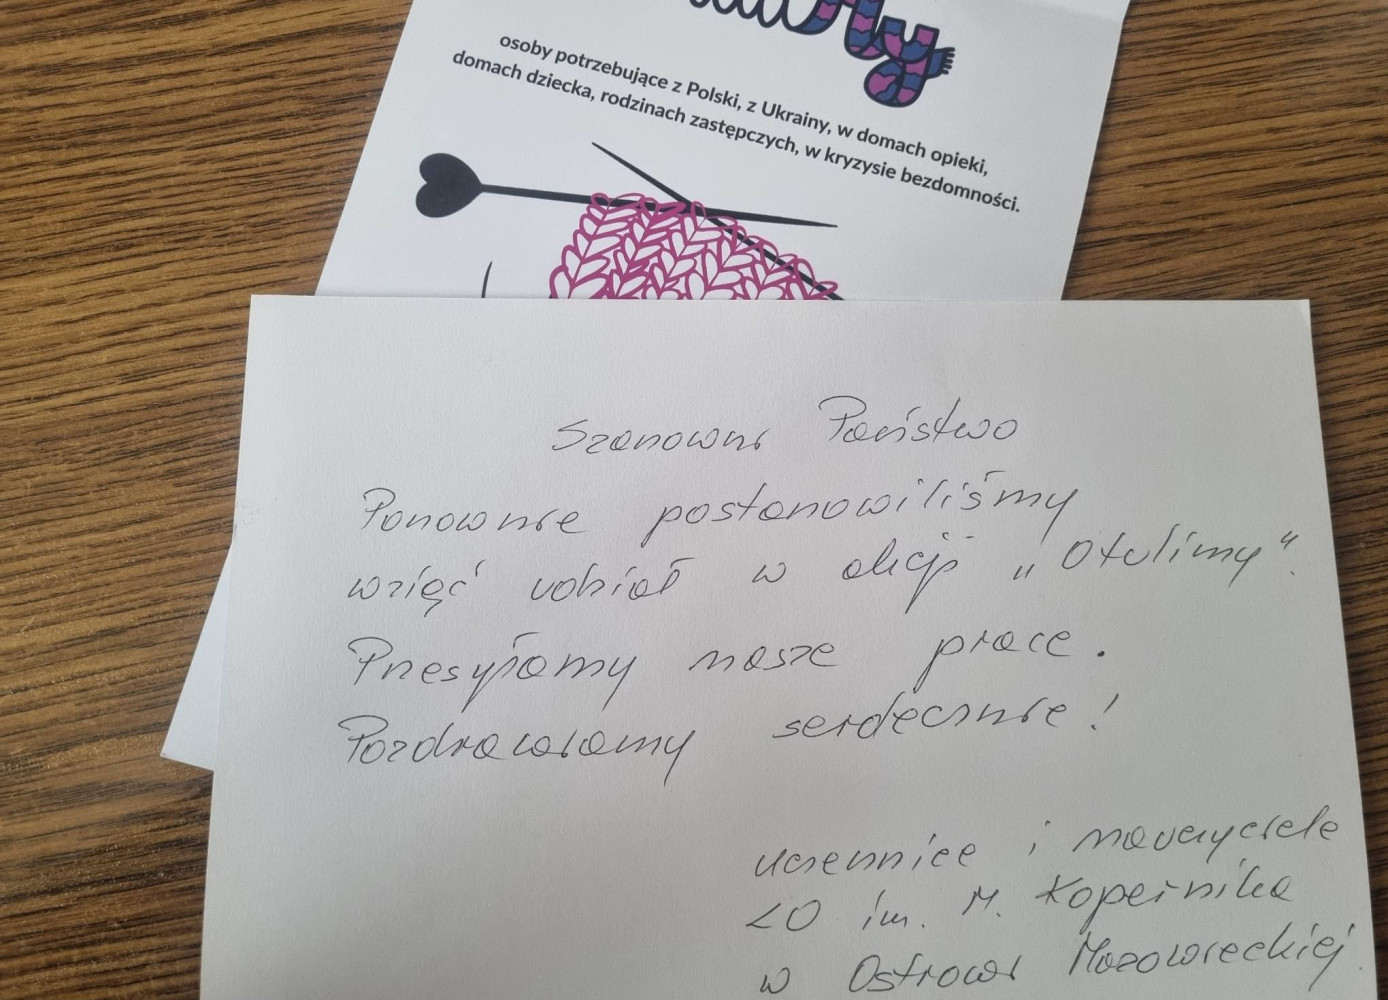 osoby potrzebujące z Polski, z Ukrainy, w domach opieki,
domach dziecka, rodzinach zastępczych, w kryzysie bezdomności.
Szanowni Państwo
Ponownie postanowiliśmy
wziąć udział w akcji „Otulimy“.
Przesyłamy nasze prace.
Pozdrawiamy serdecznie!
uczennice i nauczyciele
LO im. M. Kopernika
w Ostrowi Mazowieckiej.